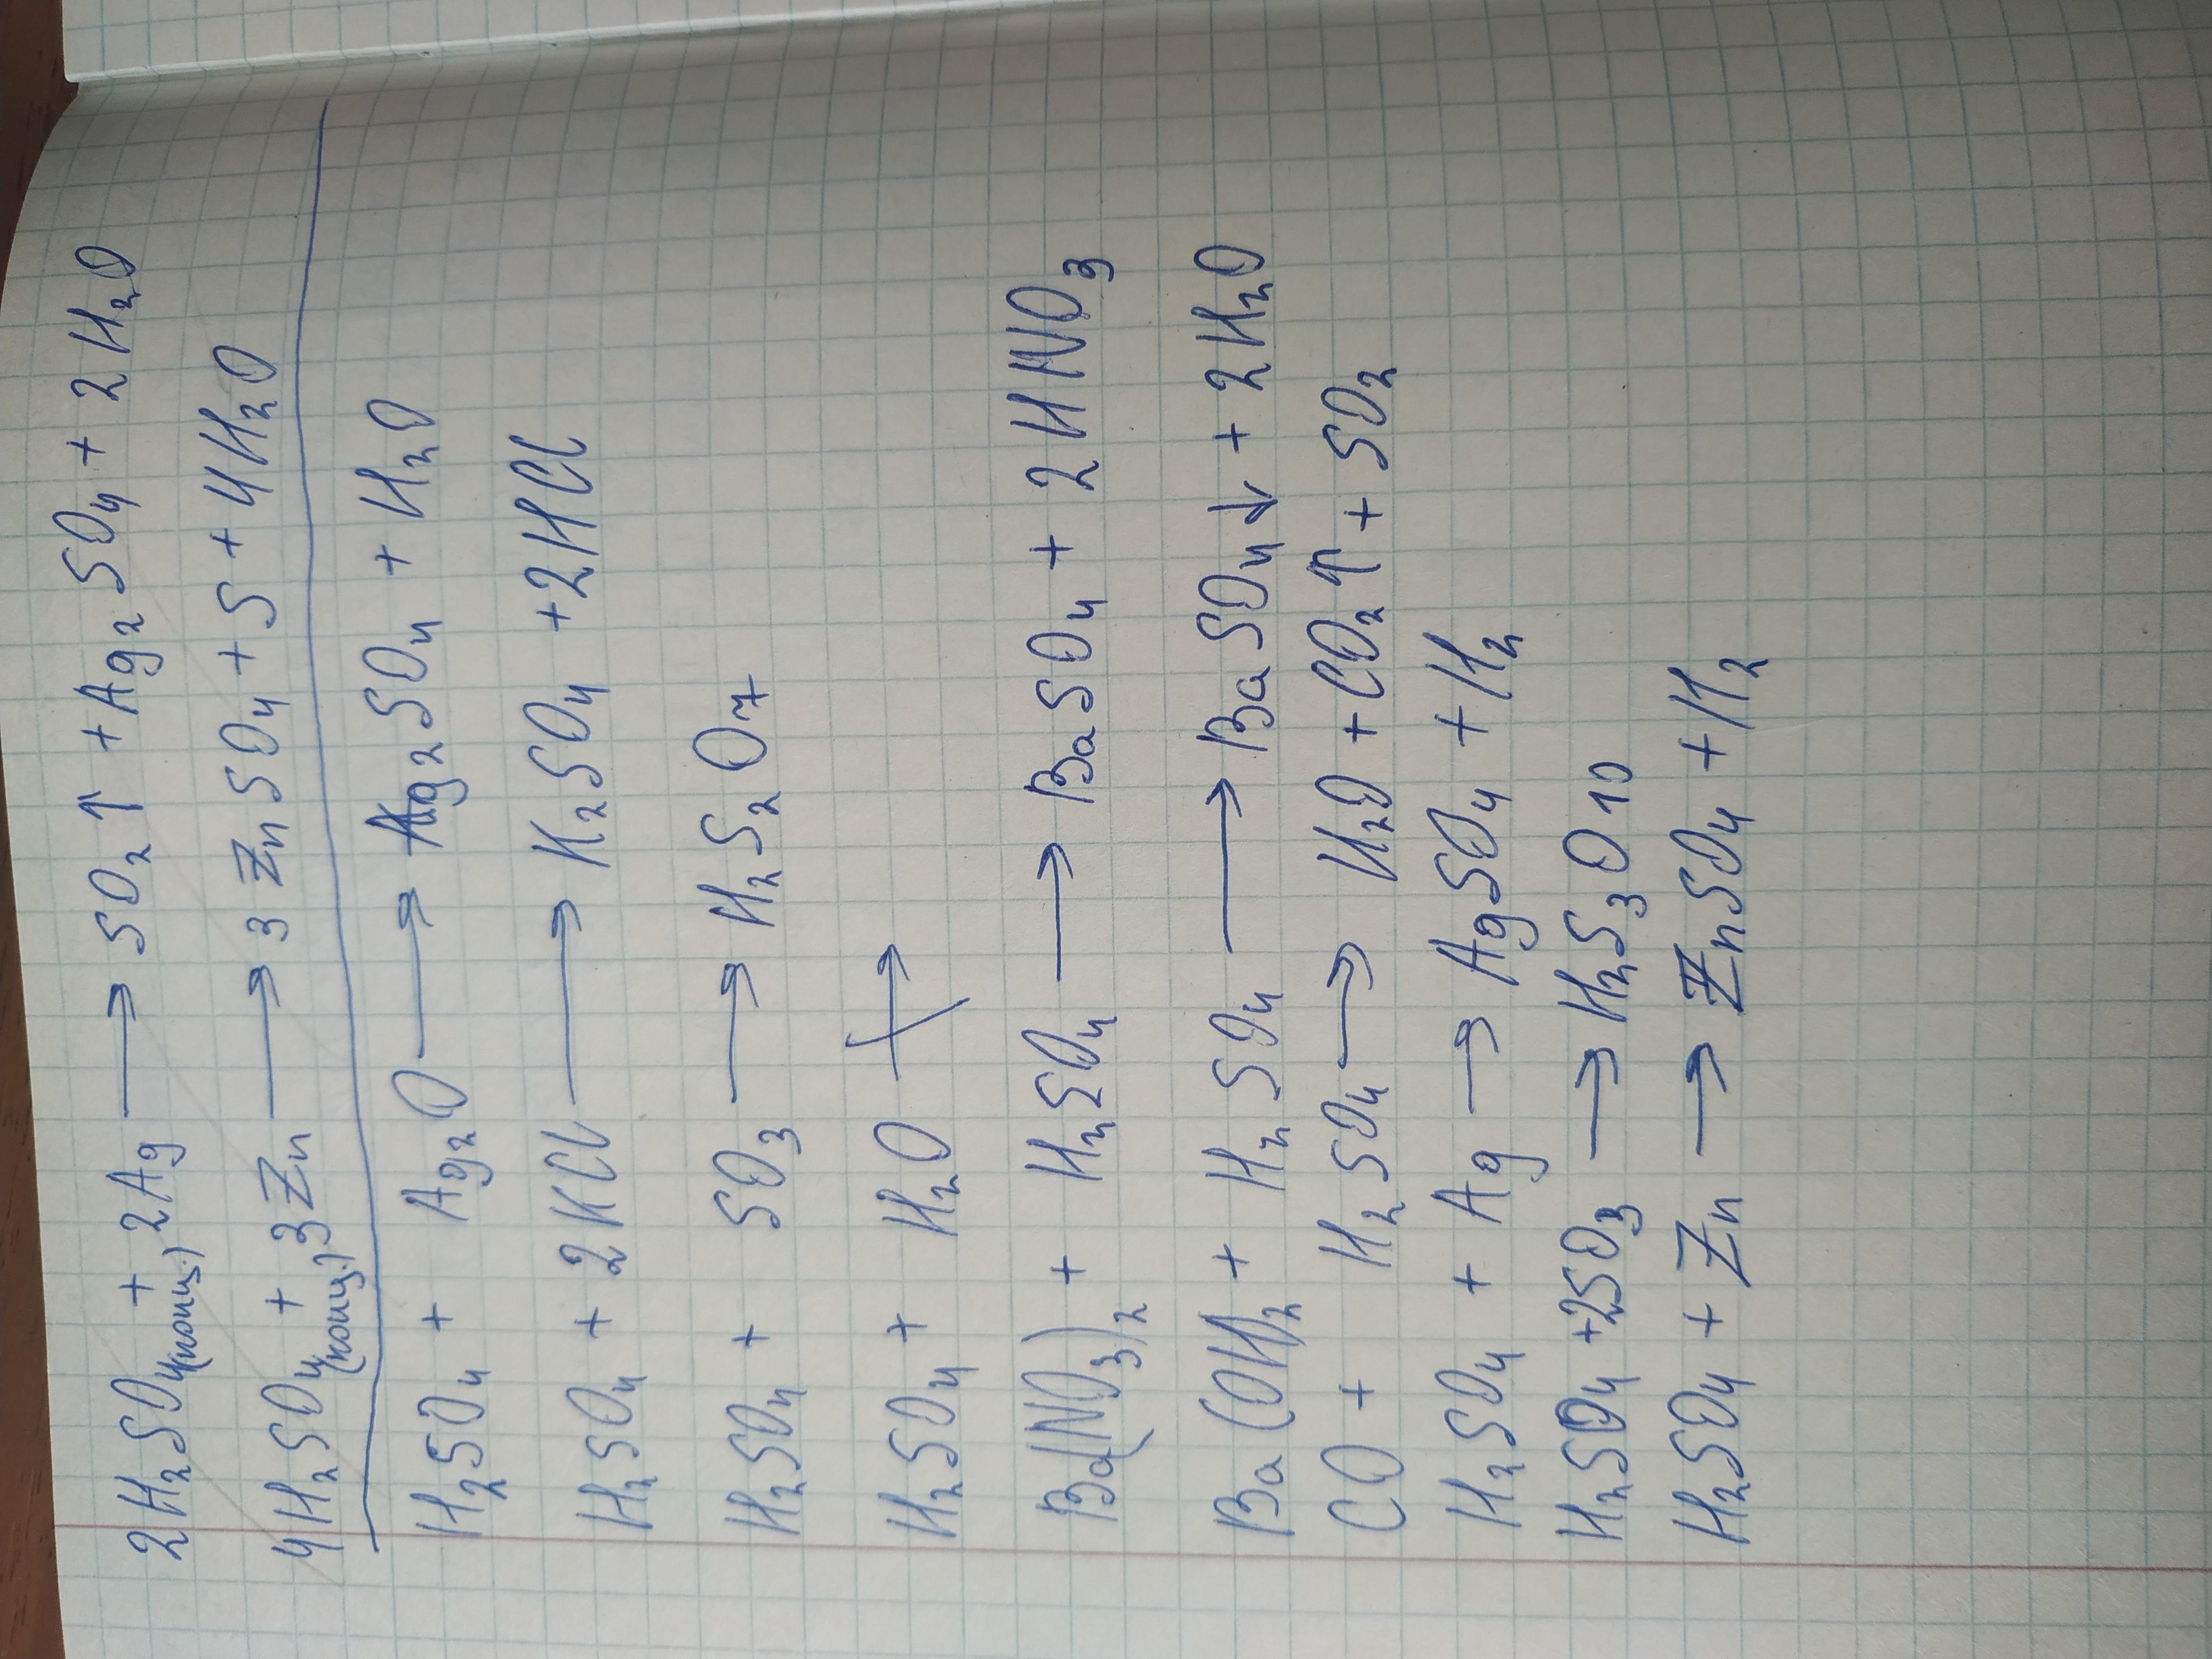 2H₂SO₄(конц.) + 2Ag ⟶ SO₂↑ + Ag₂SO₄ + 2H₂O
4H₂SO₄(конц.) + 3Zn ⟶ 3ZnSO₄ + S + 4H₂O
H₂SO₄ + Ag₂O ⟶ Ag₂SO₄ + H₂O
H₂SO₄ + 2KCl ⟶ K₂SO₄ + 2HCl
H₂SO₄ + SO₃ ⟶ H₂S₂O₇
H₂SO₄ + H₂O ↛
Ba(NO₃)₂ + H₂SO₄ ⟶ BaSO₄ + 2HNO₃
Ba(OH)₂ + H₂SO₄ ⟶ BaSO₄↓ + 2H₂O
CO + H₂SO₄ ⟶ H₂O + CO₂↑ + SO₂
H₂SO₄ + Ag ⟶ AgSO₄ + H₂
H₂SO₄ + 2SO₃ ⟶ H₂S₃O₁₀
H₂SO₄ + Zn ⟶ ZnSO₄ + H₂